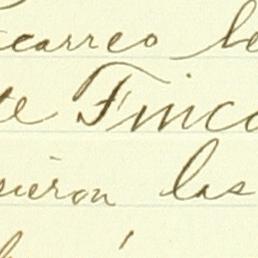 carreo le
te Finca
sieron las